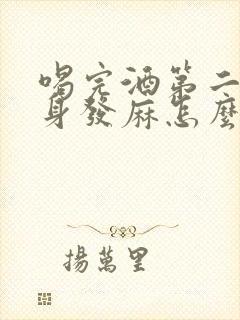 喝完酒第二
身發麻怎麼
揚萬里